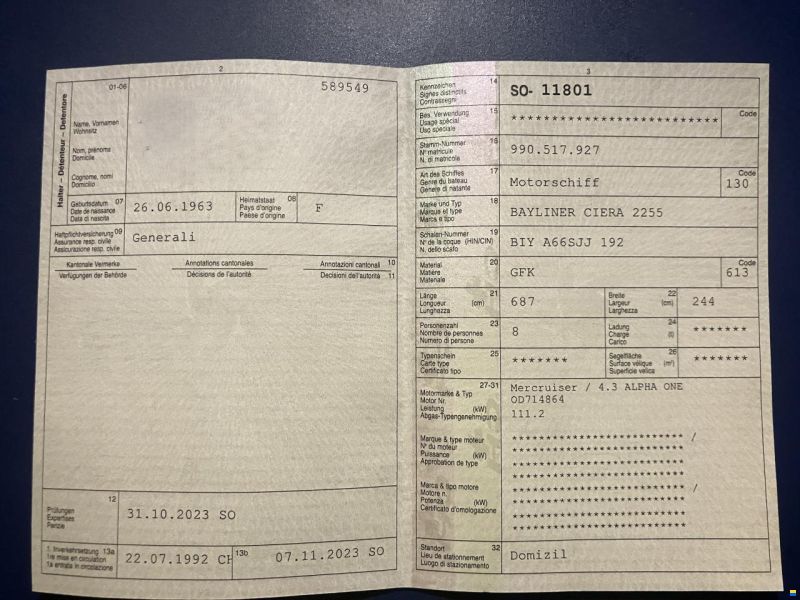 2
01-06
589549
Halter – Détenteur – Detentore
Name, Vornamen
Wohnsitz
Nom, prénoms
Domicile
Cognome, nomi
Domicilio
Geburtsdatum 07
Date de naissance
Data di nascita
26.06.1963
Heimatstaat 08
Pays d'origine
Paese d'origine
F
Haftpflichtversicherung 09
Assurance resp. civile
Assicurazione resp. civile
Generali
Kantonale Vermerke Annotations cantonales Annotazioni cantonali 10
Verfügungen der Behörde Décisions de l'autorité Decisioni dell'autorità 11
12
Prüfungen
Expertises
Perizie
31.10.2023 SO
1. Inverkehrsetzung 13a
1re mise en circulation
1a entrata in circolazione
22.07.1992 CH
13b
07.11.2023 SO
3
Kennzeichen 14
Signes distinctifs
Contrassegni
SO- 11801
Bes. Verwendung 15
Usage spécial
Uso speciale
**************************
Code
Stamm-Nummer 16
N° matricule
N. di matricola
990.517.927
Art des Schiffes 17
Genre du bateau
Genere di natante
Motorschiff
Code
130
Marke und Typ 18
Marque et type
Marca e tipo
BAYLINER CIERA 2255
Schalen-Nummer 19
N° de la coque (HIN/CIN)
N. dello scafo
BIY A66SJJ 192
Material 20
Matière
Materiale
GFK
Code
613
Länge 21
Longueur (cm)
Lunghezza
687
Breite 22
Largeur (cm)
Larghezza
244
Personenzahl 23
Nombre de personnes
Numero di persone
8
Ladung 24
Charge (t)
Carico
*******
Typenschein 25
Carte type
Certificato tipo
*******
Segelfläche 26
Surface vélique (m²)
Superficie velica
*******
27-31
Motormarke & Typ
Motor Nr.
Leistung (kW)
Abgas-Typengenehmigung
Mercruiser / 4.3 ALPHA ONE
OD714864
111.2
Marque & type moteur
N° du moteur
Puissance (kW)
Approbation de type
************************* /
*************************
*************************
*************************
Marca & tipo motore
Motore n.
Potenza (kW)
Certificato d'omologazione
************************* /
*************************
*************************
*************************
Standort 32
Lieu de stationnement
Luogo di stazionamento
Domizil